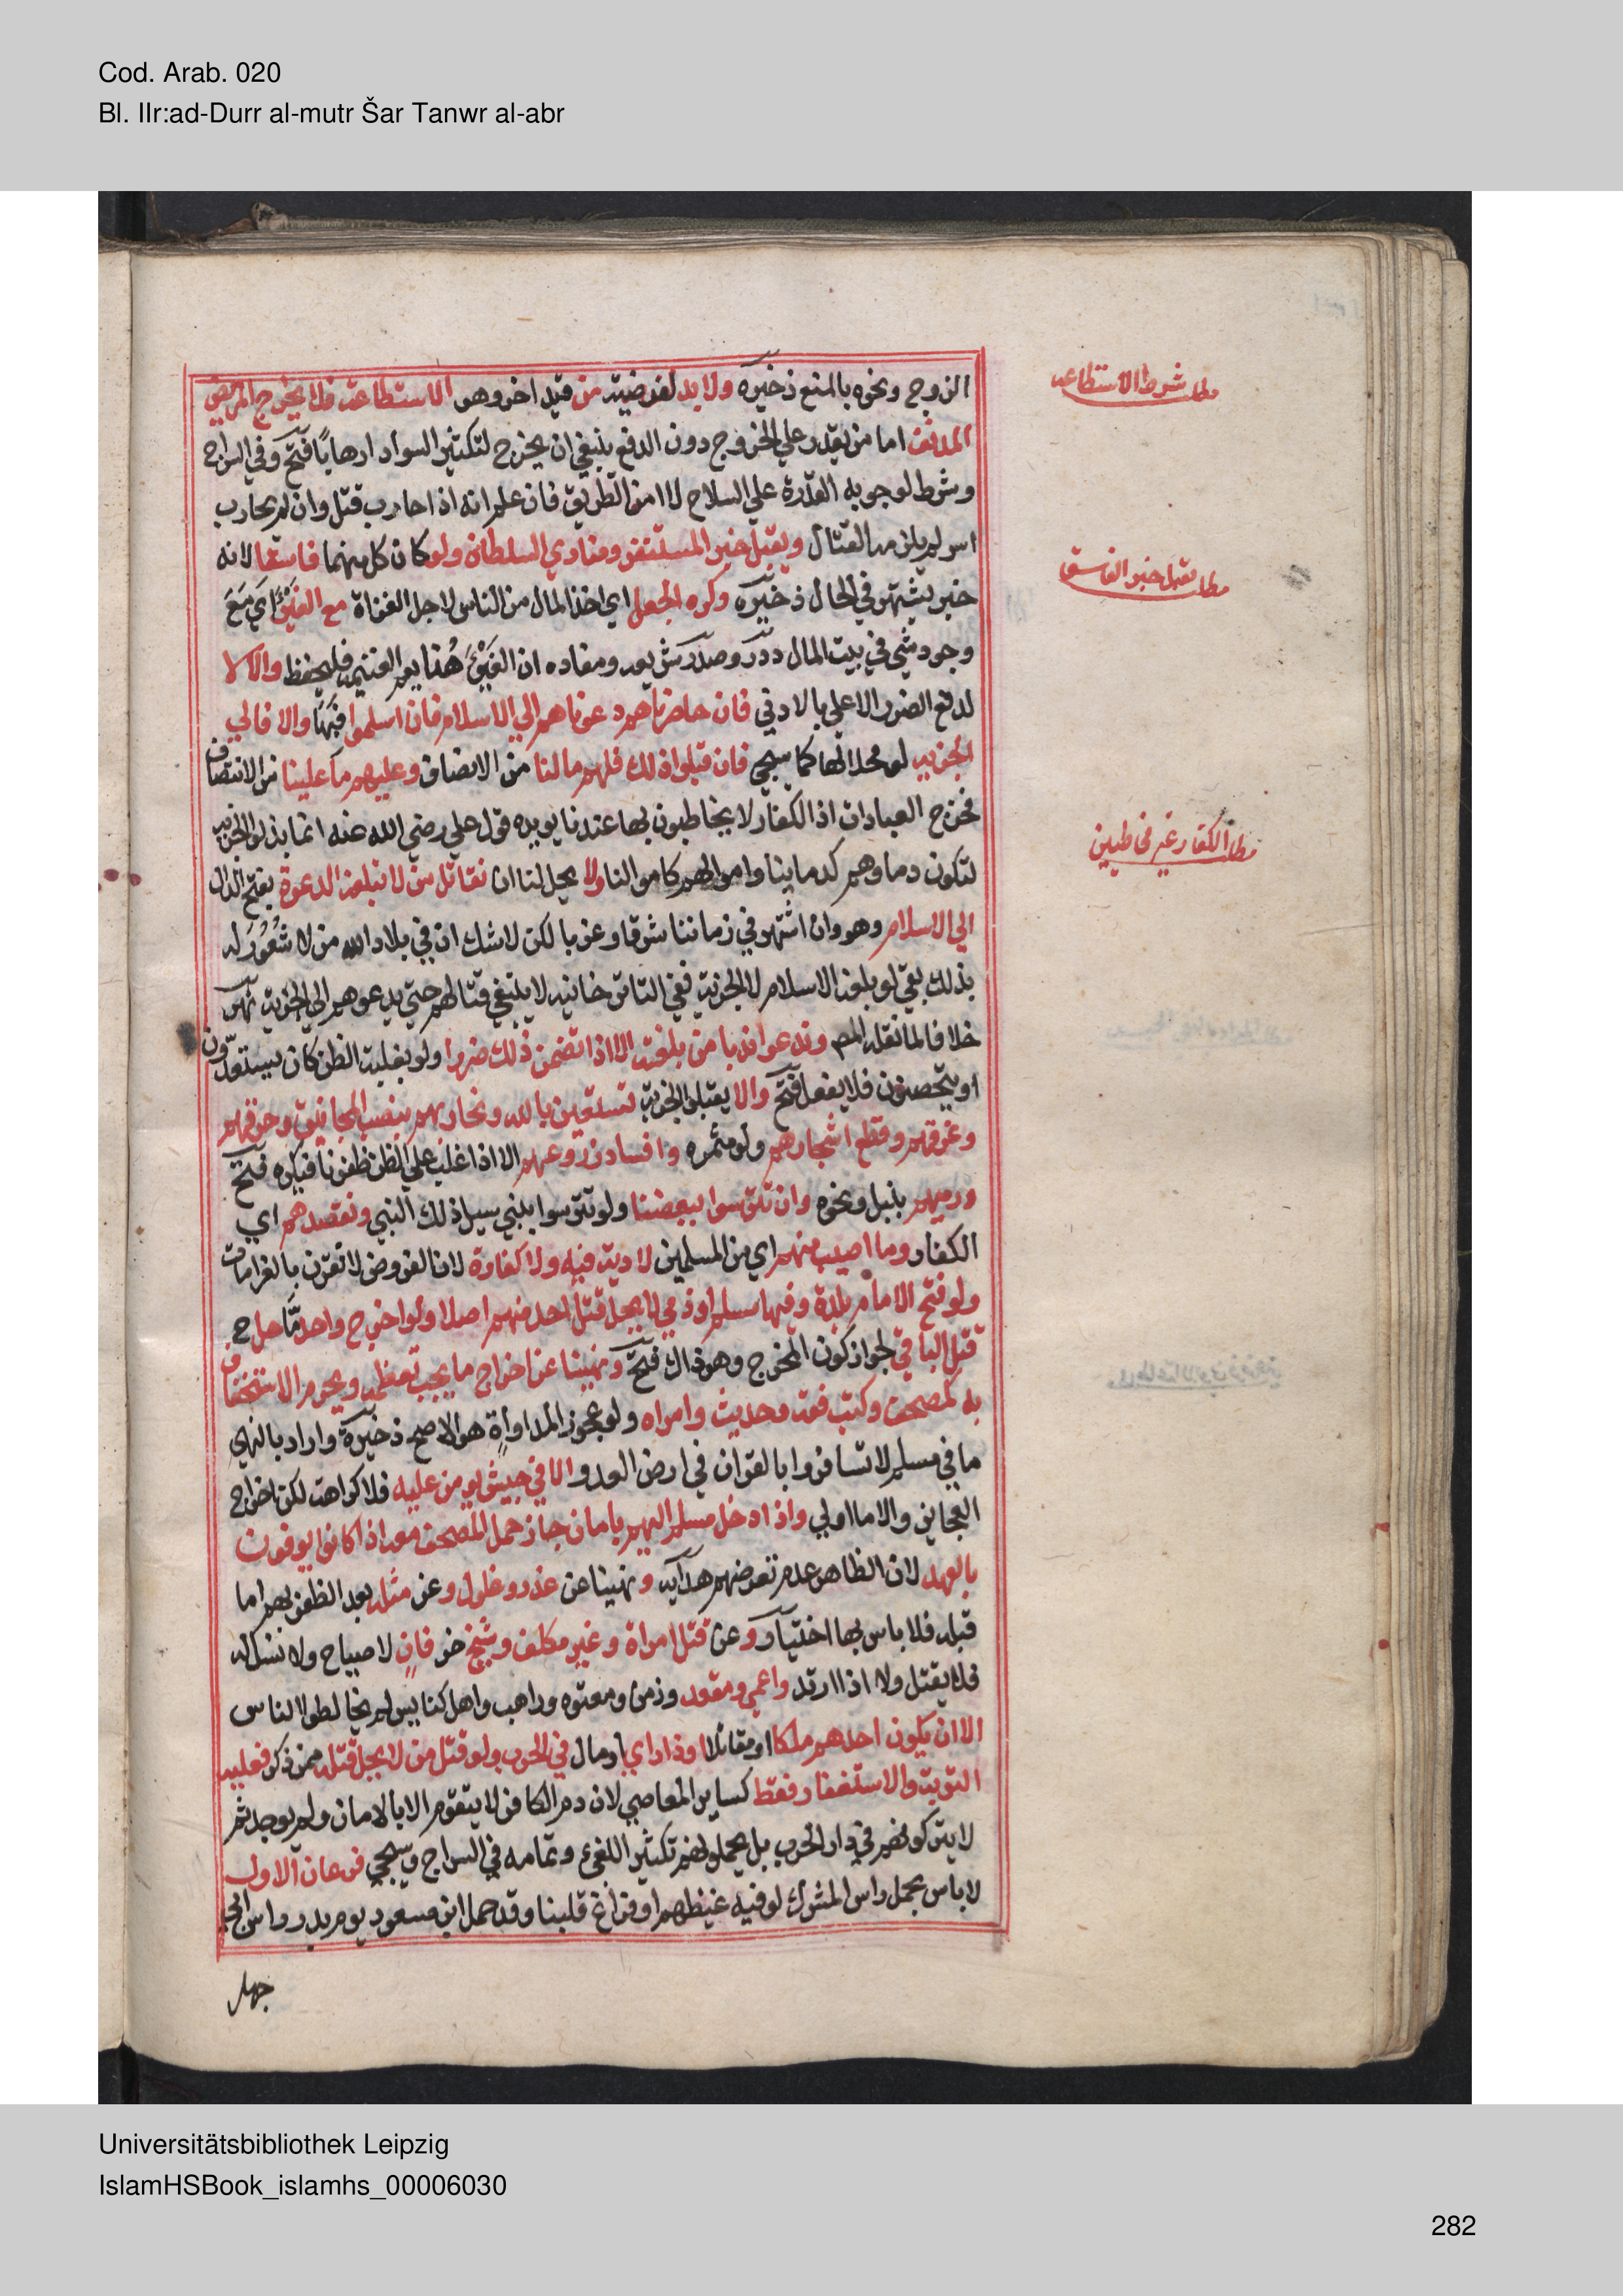 Cod. Arab. 020
Bl. IIr:ad-Durr al-mutr Šar Tanwr al-abr
الزوج ونحوه بالمنع ذخيره ولا بد لفرضيته من قيد اخر وهو الاستطاعة فلا يخرج المريض
المدنف اما من يقدر علي الخروج دون الدفع ينبغي ان يخرج لتكثير السواد ارهابا فتح وفي السراج
وشرط لوجوبه القدرة علي السلاح لا امن الطريق فان علم انه اذا حارب قتل وان لم يحارب
اسر لم يلزمه القتال ويقبل خبر المستنفر ومنادي السلطان ولو كان كل منهما فاسقا لانه
خبر يشتهر في الحال ذخيره وكره الجعل اي اخذ المال من الناس لاجل الغزاة مع الفيئ اي مع
وجود شي في بيت المال درر وصدر شريعه ومفاده ان الفيئ هنا يعم الغنيمه فليحفظ والا لا
لدفع الضرر الاعلي بالادني فان حاصرناهم دعوناهم الي الاسلام فان اسلموا فبها والا فالي
الجزيه لو محلا لها كما سيجي فان قبلوا ذلك فلهم مالنا من الانصاف وعليهم ما علينا من الانتصاف
فخرج العبادات اذ الكفار لا يخاطبون بها عندنا يويده قول علي رضي الله عنه انما بذلوا الجزيه
لتكون دماوهم كدماينا واموالهم كاموالنا ولا يحل لنا ان نقاتل من لا تبلغه الدعوة بفتح الدال
الي الاسلام وهو وان اشتهر في زماننا شرقا وغربا لكن لاشك ان في بلاد الله من لا شعور له
بذلك بقي لو بلغه الاسلام لا الجزية ففي التاتر خانيه لا ينبغي قتالهم حتي يدعوهم الي الجزية نهر
خلافا لما نقله المص وندعوا ندبا من بلغته الا اذا تضمن ذلك ضررا ولو بغلبة الظن كان يستعدون
او يتحصنون فلا يفعل فتح والا يقبلوا الجزية نستعين بالله ونحاربهم بنصب المجانيق وحرقهم
وغرقهم وقطع اشجارهم ولو مثمره وافساد زروعهم الا اذا غلب علي الظن ظفرنا فيكره فتح
ورميهم بنبل ونحوه وان تترسوا ببعضنا ولو تترسوا بنبي سيل ذلك النبي ونقصدهم اي
الكفار وما اصيب منهم اي من المسلمين لا دية فيه ولا كفارة لان الفروض لا تقرن بالغرامات
ولو فتح الامام بلدة وفيها مسلم او ذمي لا يحل قتل احد منهم اصلا ولو اخرج واحد ما حل ح
قتل الباقي لجواز كون المخرج وهو ذاك فتح ونهينا عن اخراج ما يجب تعظيمه ويحرم الاستخفاف
به كمصحف وكتب فقه وحديث وامراه ولو عجوز المداواة هو الاصح ذخيرة واراد بالنهي
ما في مسلم لا تسافروا بالقران في ارض العدو الا في جيش يومن عليه فلا كراهة لكن اخراج
العجايز والاما اولي واذا دخل مسلم اليهم بامان جاز حمل المصحف معه اذا كانوا يوفون
بالعهد لان الظاهر عدم تعرضهم هدايه ونهينا عن غدر وغلول وعن مثله بعد الظفر بهم اما
قبله فلا باس بها اختيار وعن قتل امراة وغير مكلف وشيخ خر فان لا صياح ولا نسل له
فلا يقتل ولا اذا ارتد واعمي ومقعد وزمن ومعتوه وراهب واهل كنايس لم يخالطوا الناس
الا ان يكون احدهم ملكا او مقاتلا او ذا راي او مال في الحرب ولو قتل من لا يحل قتله ممن ذكر فعليه
التوبة والاستغفار فقط كساير المعاصي لان دم الكافر لا يتقوم الا بالامان ولم يوجد ثم
لا يتركونهم في دار الحرب بل يحملونهم تكثيرا للفئ وتمامه في السراج وسيجي فرعان الاول
لاباس بحمل راس المشرك لو فيه غيظهم او فراغ قلبنا وقد حمل ابن مسعود يوم بدر راس ابي
جهل
مطلب شرط الاستطاعه
مطلب يقبل خبر الفاسق
مطلب الكفار غير مخاطبين
Universitätsbibliothek Leipzig
IslamHSBook_islamhs_00006030
282